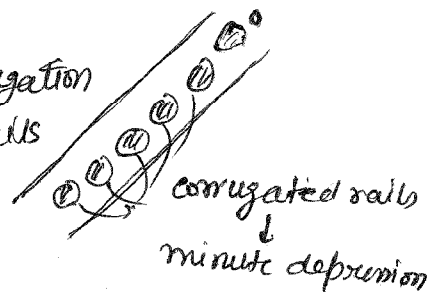 gation
corrugated rails
↓
minute depression